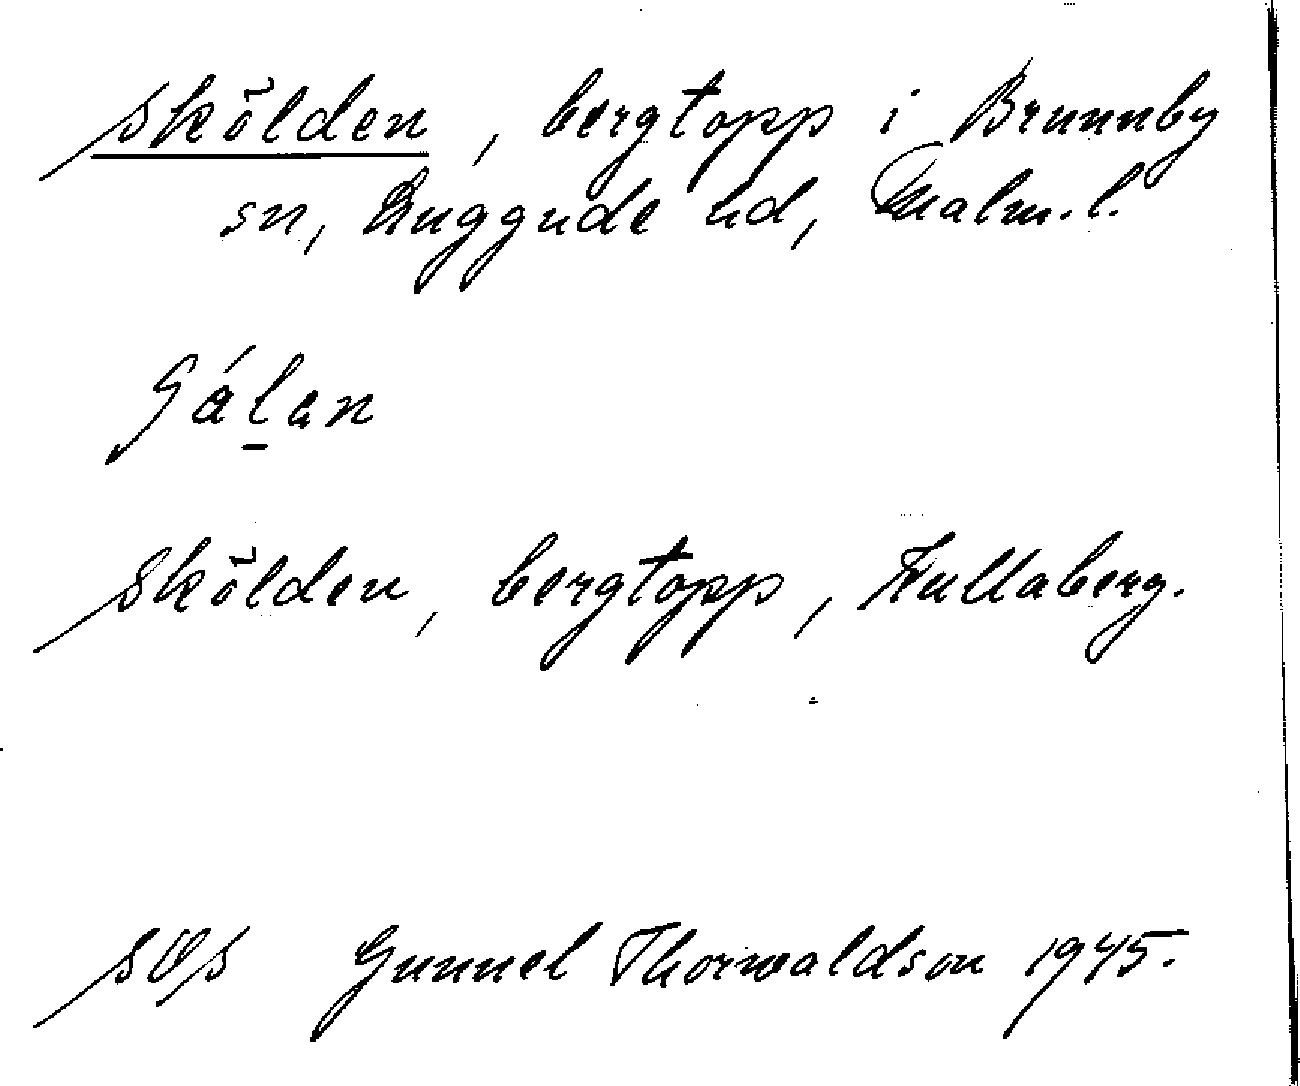 Skölden, bergtopp i Brunnby
sn, Luggude hd, Malm. l.
Skölden, bergtopp, Kullaberg.
Gunnel Thorwaldson 1945.